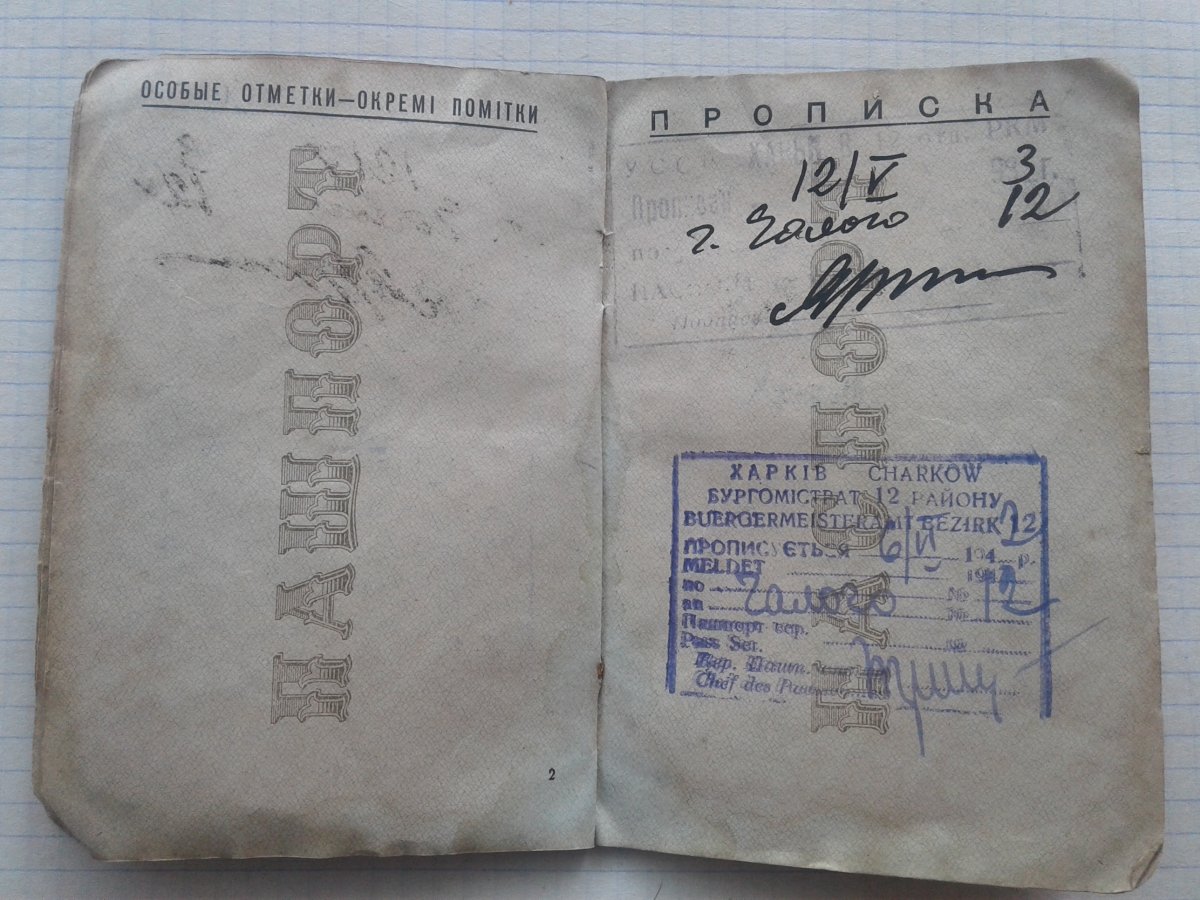 ОСОБЫЕ ОТМЕТКИ—ОКРЕМІ ПОМІТКИ
ПАШПОРТ
2
ПРОПИСКА
УССР РКМ
12/V 3
г. Чалого 12
ПАСПОРТ
ХАРКІВ CHARKOW
БУРГОМІСТРАТ 12 РАЙОНУ
BUERGERMEISTERAMT BEZIRK 12
ПРОПИСУЄТЬСЯ 6/VI 194 р.
MELDET 194
по Чалого № 12
an №
Пашпорт сер.
Pass Ser. №
Кер. Пашп.
Chef des Pass